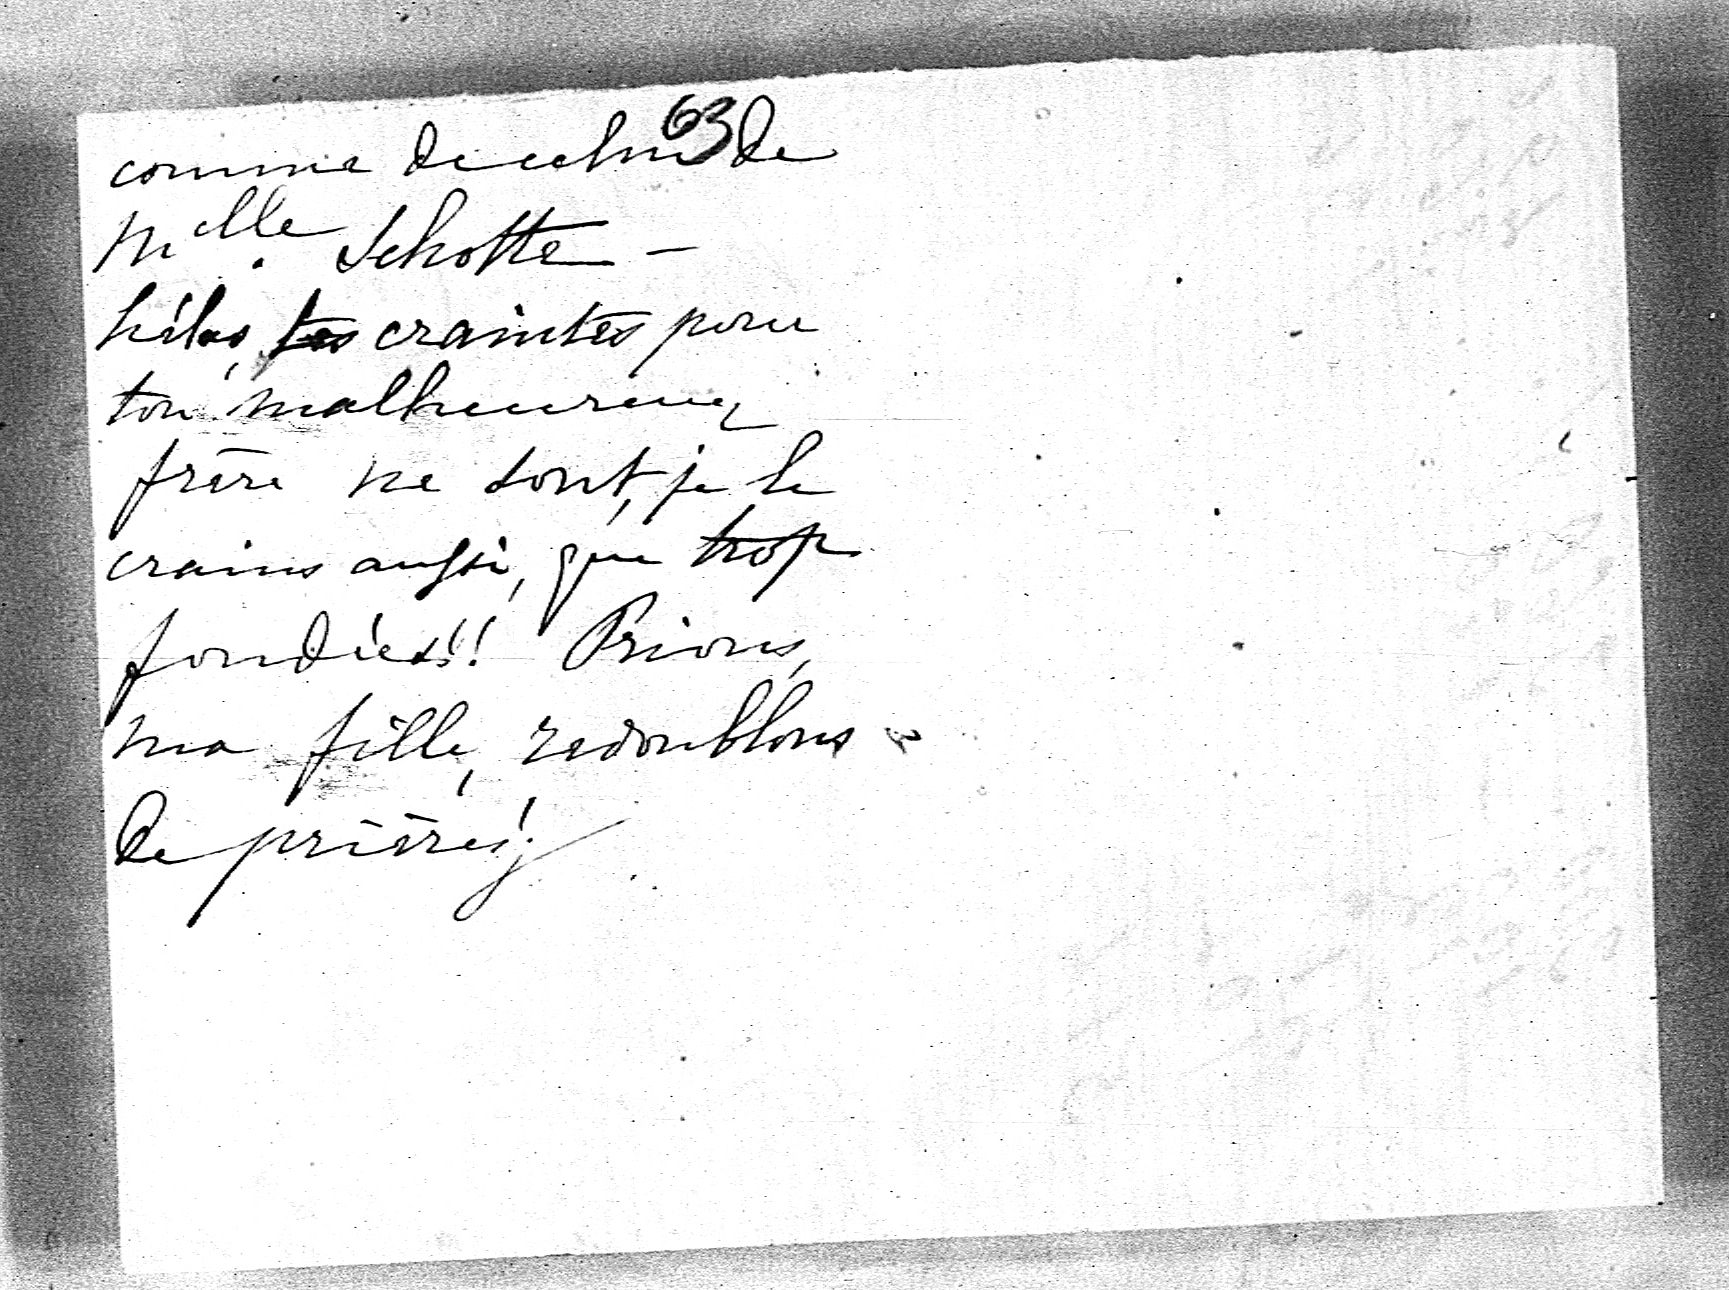 63
comme de celui de
Melle. Schotte -
hélas, tes craintes pour
ton malheureux
frère ne sont, je le
crains aussi, que trop
fondées!! Prions,
ma fille, redoublons
de prières!